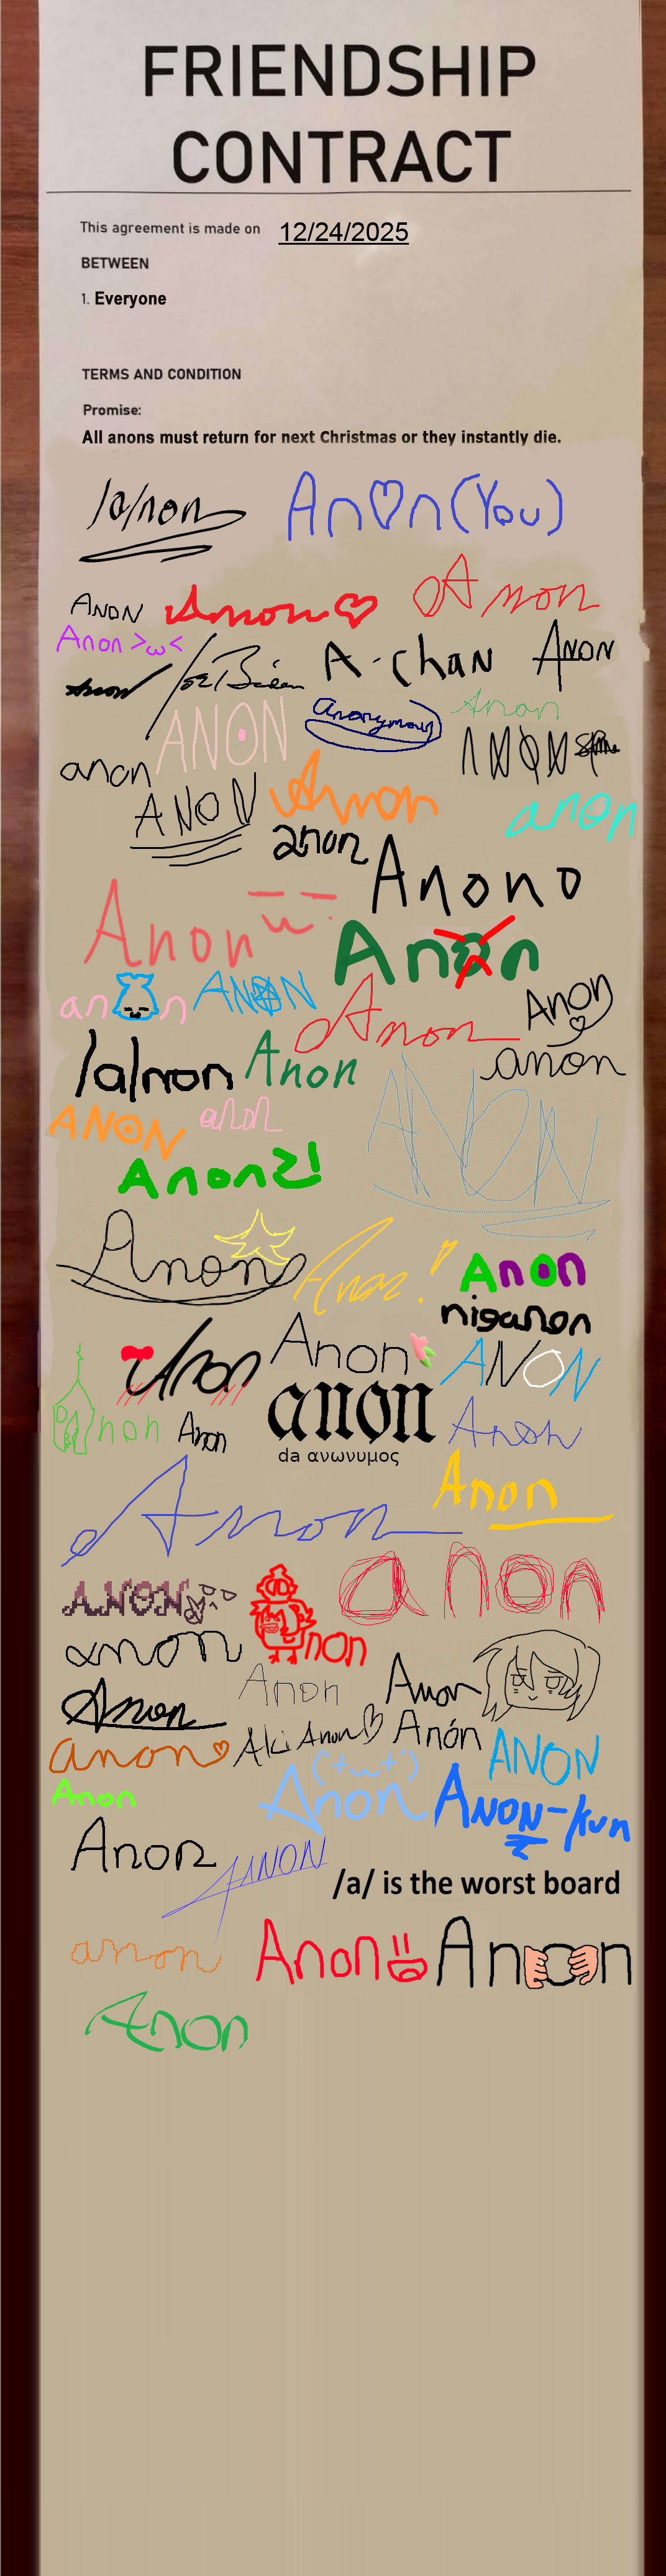 FRIENDSHIP
CONTRACT
This agreement is made on 12/24/2025
BETWEEN
1. Everyone
TERMS AND CONDITION
Promise:
All anons must return for next Christmas or they instantly die.
/a/non An♡n (You)
Anon
ANON Anon♡
Anon >ω<
Anon Joe Biden A-chan ANON
ANON Anonymous Anon
anon
ANON Anon anon
anon Anono
Anon
Anon
anon ANON Anon Anon
/a/non Anon anon
ANON anon ANON
Anon2!
Anon Anon! Anon
niganon
Anon Anon ANON
Anon Anon anon Anon
da ανωνυμος
Anon Anon
ANON anon
anon non
Anon Anon Anon
anon♡ Aki Anon♡ Anón ANON
Anon Anon ('+ω+') ANON-kun
Anon ANON
/a/ is the worst board
anon Anon Anon
Anon